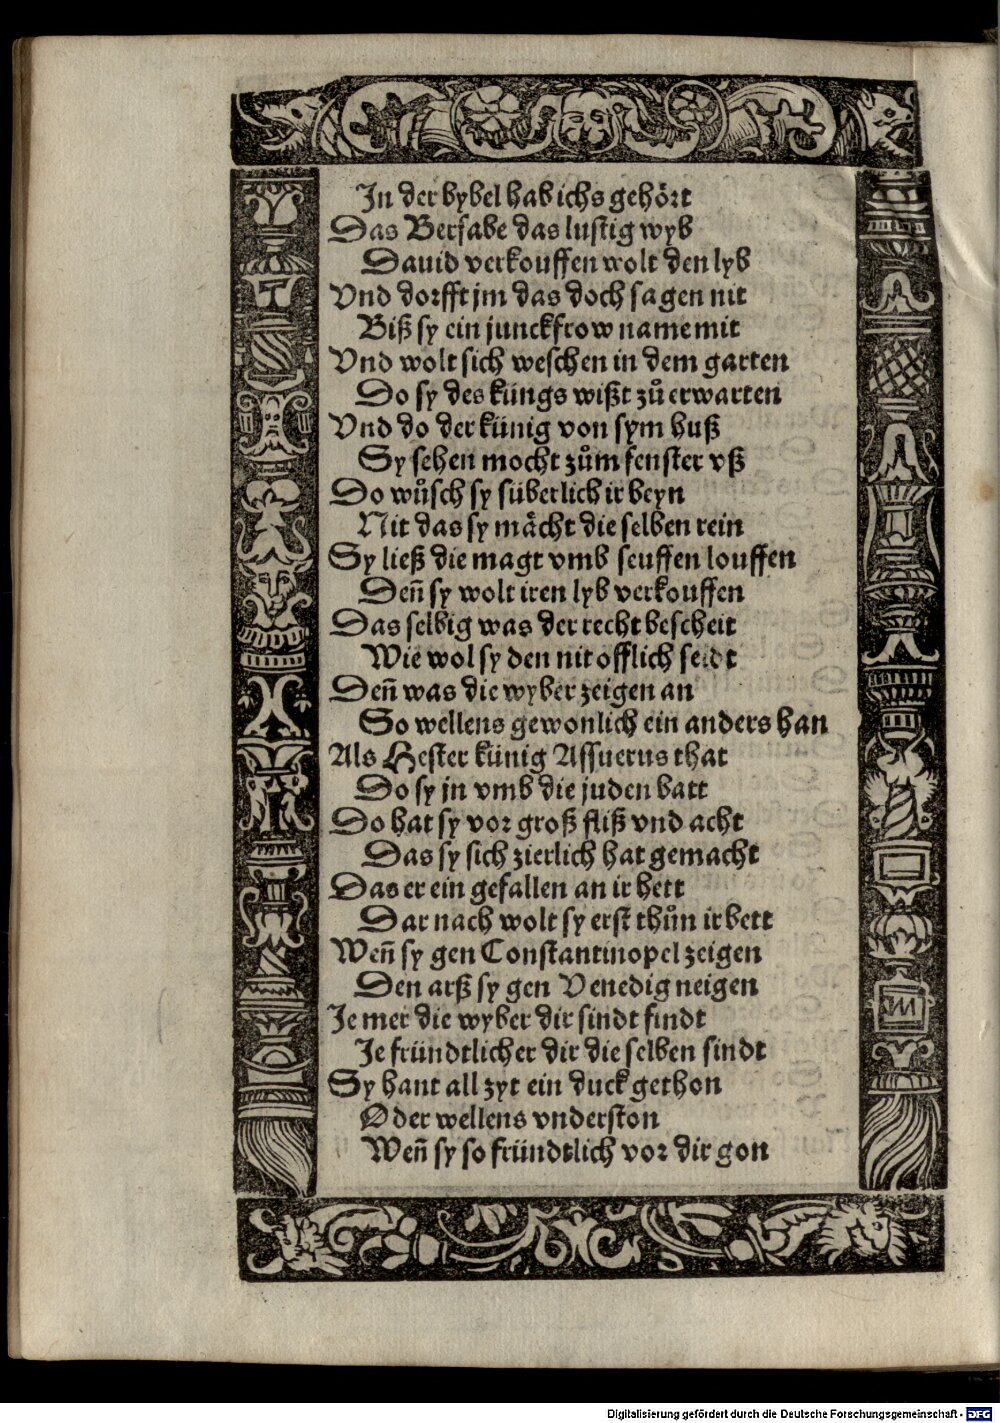 In der bybel hab ichs gehört
Das Bersabe das lustig wyb
Dauid verkouffen wolt den lyb
Vnd dorfft jm das doch sagen nit
Biß sy ein junckfrow name mit
Vnd wolt sich weschen in dem garten
Do sy des küngs wißt zů erwarten
Vnd do der künig von sym huß
Sy sehen mocht zům fenster vß
Do wůsch sy süberlich ir beyn
Nit das sy mächt die selben rein
Sy ließ die magt vmb seuffen louffen
Den̄ sy wolt iren lyb verkouffen
Das selbig was der recht bescheit
Wie wol sy den nit offlich seidt
Den̄ was die wyber zeigen an
So wellens gewonlich ein anders han
Als Hester künig Assuerus that
Do sy jn vmb die juden batt
Do hat sy vor groß fliß vnd acht
Das sy sich zierlich hat gemacht
Das er ein gefallen an ir hett
Dar nach wolt sy erst thůn ir bett
Wen̄ sy gen Constantinopel zeigen
Den arß sy gen Venedig neigen
Je mer die wyber dir sindt findt
Je fründtlicher dir die selben sindt
Sy hant all zyt ein duck gethon
Oder wellens vnderston
Wen̄ sy so fründtlich vor dir gon
Digitalisierung gefördert durch die Deutsche Forschungsgemeinschaft - DFG